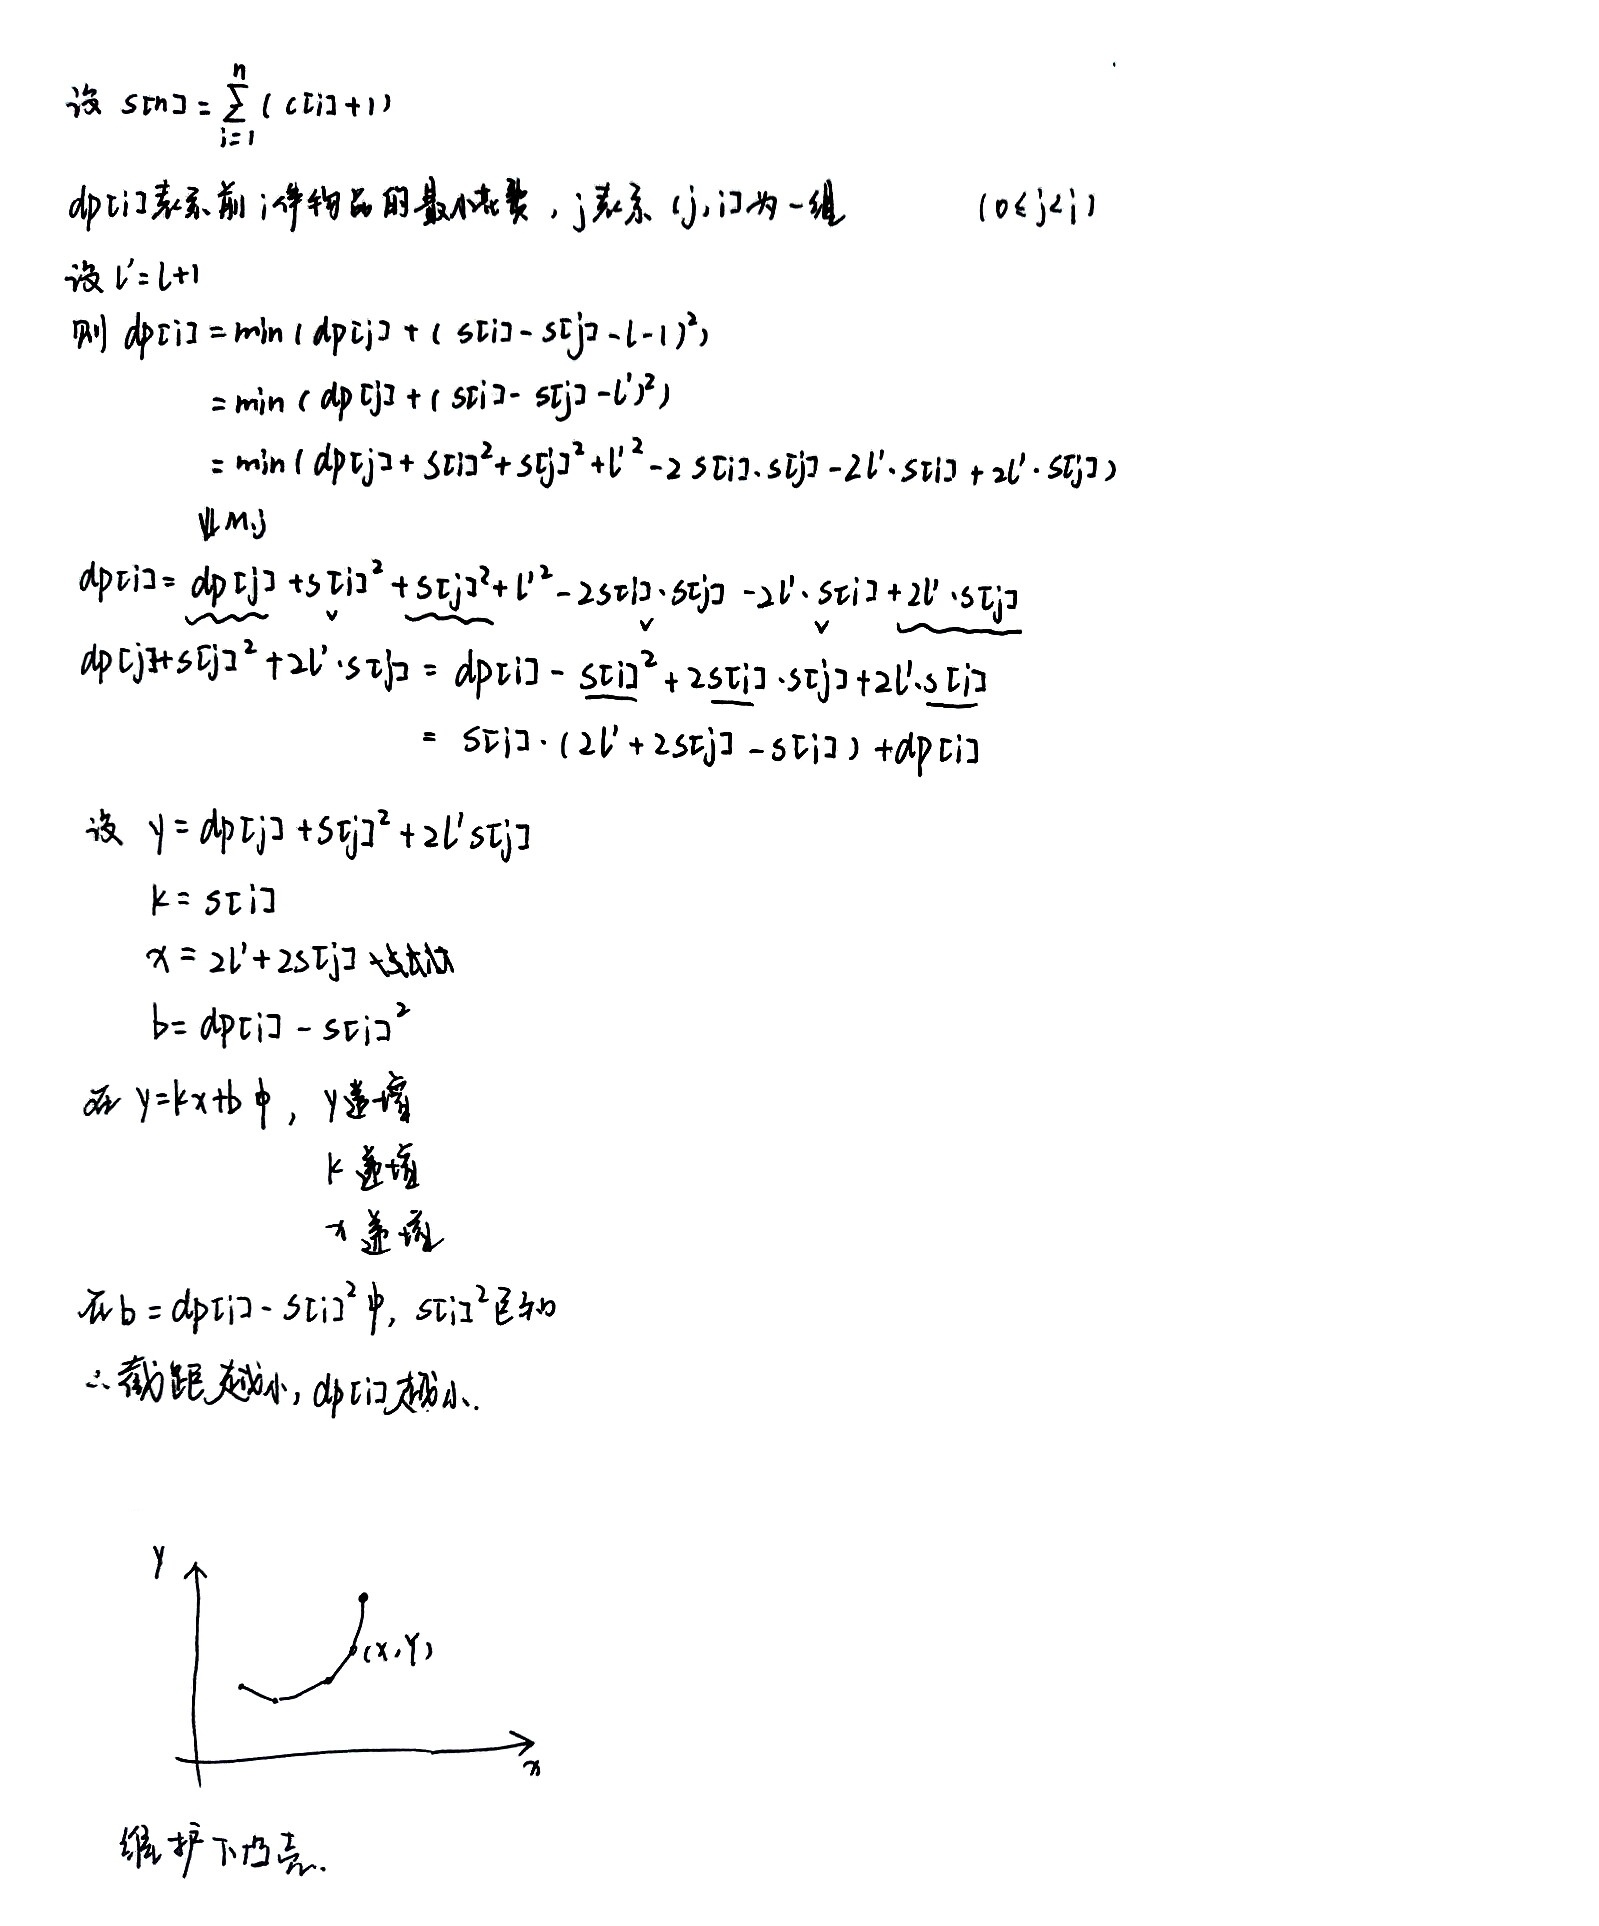 设 s[n] = ∑_{i=1}^{n} (c[i]+1)
dp[i]表示前i件物品的最小花费, j表示(j,i]为一组 (0≤j<i)
设 l'=l+1
则 dp[i] = min(dp[j] + (s[i] - s[j] - l - 1)²)
= min(dp[j] + (s[i] - s[j] - l')²)
= min(dp[j] + s[i]² + s[j]² + l'² - 2s[i]·s[j] - 2l'·s[i] + 2l'·s[j])
dp[i] = dp[j] + s[i]² + s[j]² + l'² - 2s[i]·s[j] - 2l'·s[i] + 2l'·s[j]
dp[j]+s[j]² + 2l'·s[j] = dp[i] - s[i]² + 2s[i]·s[j] + 2l'·s[i]
= s[i]·(2l' + 2s[j] - s[i]) + dp[i]
设 y = dp[j] + s[j]² + 2l's[j]
k = s[i]
x = 2l' + 2s[j]
b = dp[i] - s[i]²
在 y=kx+b中, y递增
k递增
x递增
在 b = dp[i] - s[i]²中, s[i]²已知
∴截距越小, dp[i]越小.
y
(x,y)
x
维护下凸壳.